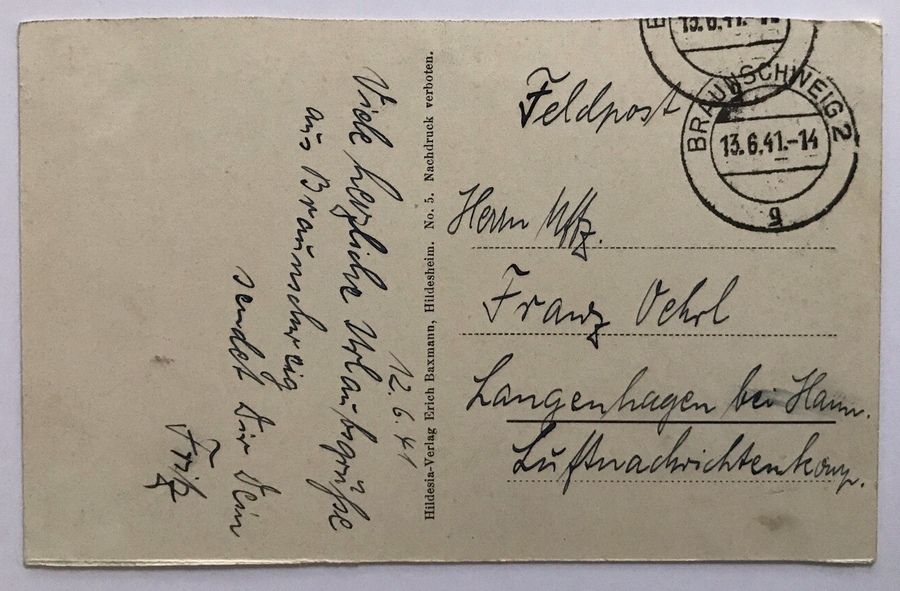 12.6.41
Viele herzliche Urlaubsgrüße
aus Braunschweig
sendet Dir Dein
Fritz
Hildesia-Verlag Erich Baxmann, Hildesheim. No. 5. Nachdruck verboten.
13.6.41.-1
BRAUNSCHWEIG 2
13.6.41.-14
g
Feldpost
Herrn Uffz.
Franz Oehrl
Langenhagen bei Hann.
Luftnachrichtenkomp.